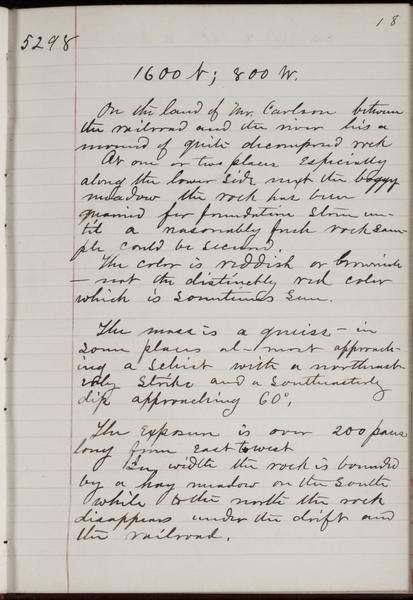 18
5298
1600 N; 800 W.
On the land of Mr. Carlson between
the railroad and the river lies a
mound of quite decomposed rock
At one or two places Especially
along the lower side next the boggy
meadow the rock has been
quarried for foundation stone un-
til a reasonably fresh rock sam-
ple could be secured.
The color is reddish or brownish
- not the distinctly red color
which is sometimes seen.
The mass is a gneiss - in
some places al-most approach-
ing a schist with a northeast
erly strike and a southeasterly
dip approaching 60°,
The Exposure is over 200 paces
long from East to west
In width the rock is bounded
by a hay meadow on the South
while to the north the rock
disappears under the drift and
the railroad.